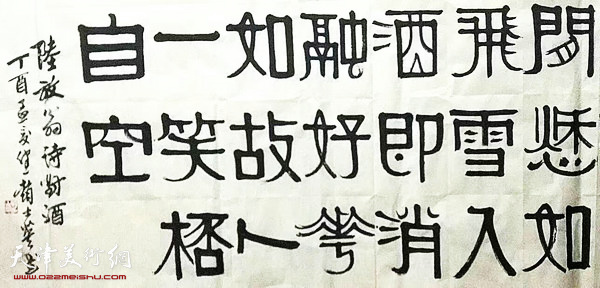 閒愁如
飛雪入
酒即消
融好華
如故人
一笑桮
自空
陸放翁詩對酒
丁酉孟夏
天津美术網
www.022meishu.com